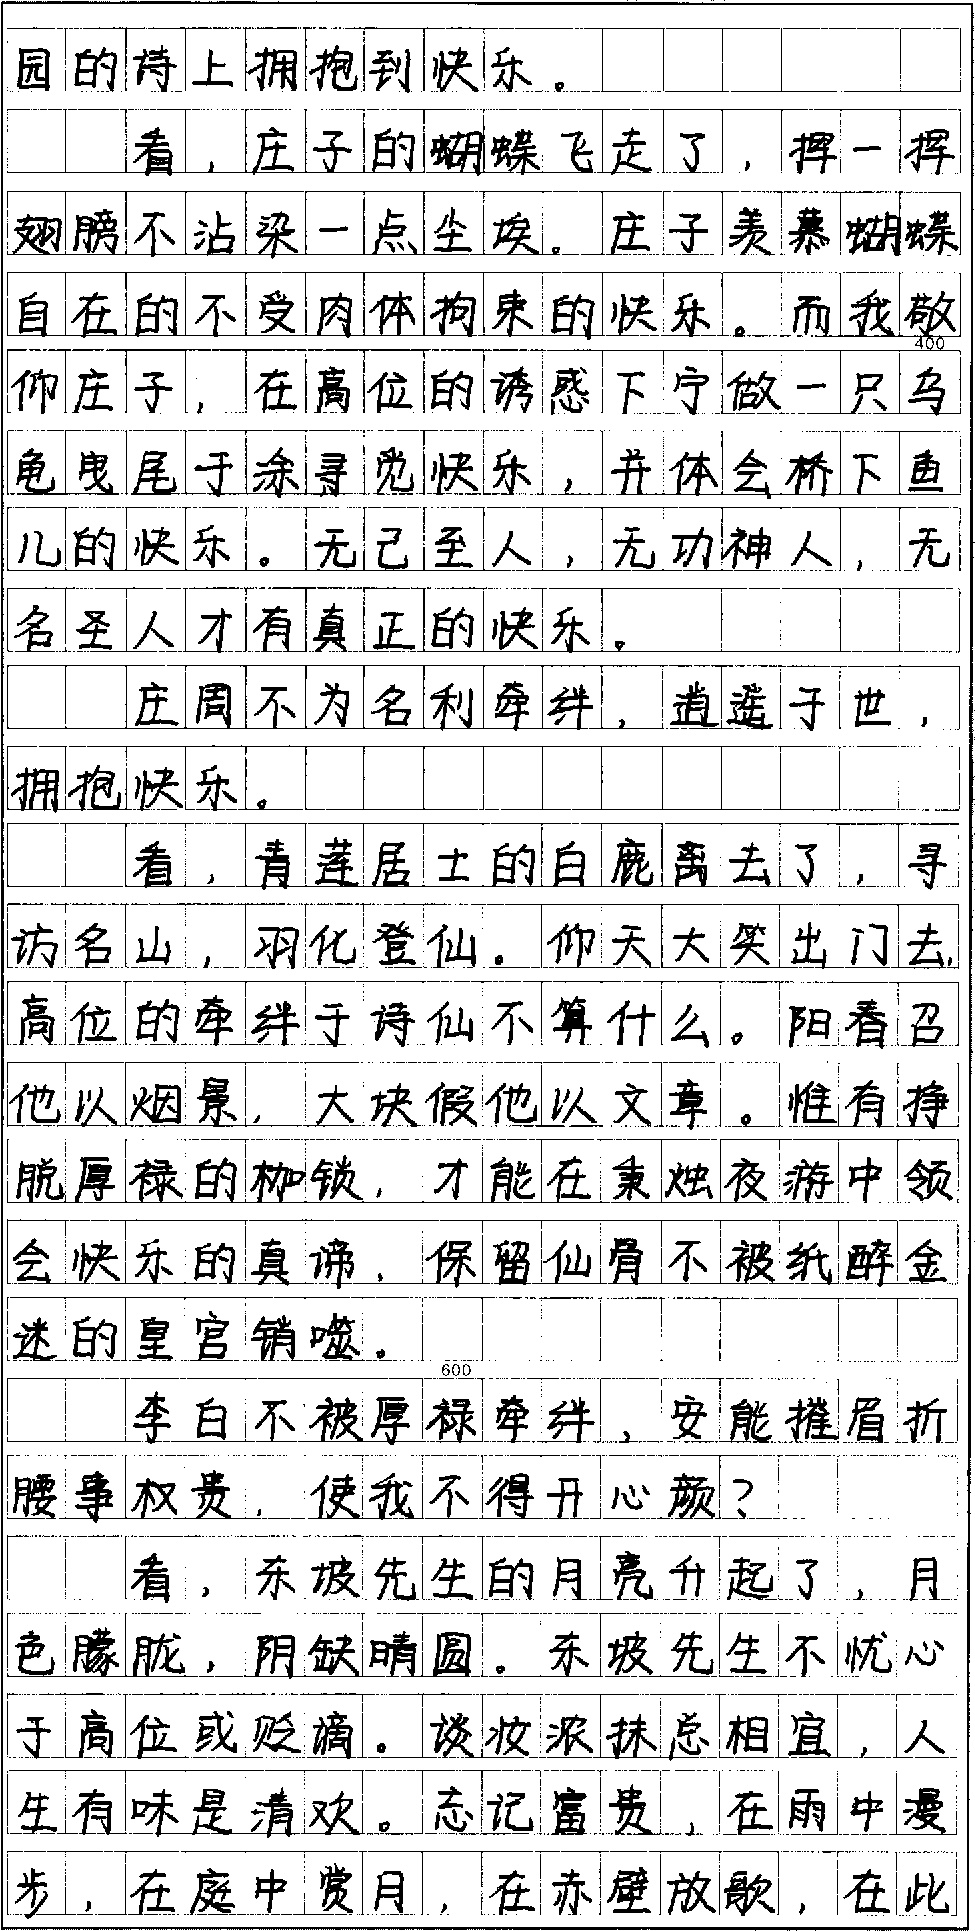 园的诗上拥抱到快乐。
看，庄子的蝴蝶飞走了，挥一挥
翅膀不沾染一点尘埃。庄子羡慕蝴蝶
自在的不受肉体拘束的快乐。而我敬
400
仰庄子，在高位的诱惑下宁做一只乌
龟曳尾于涂寻觅快乐，并体会桥下鱼
儿的快乐。无己至人，无功神人，无
名圣人才有真正的快乐。
庄周不为名利牵绊，逍遥于世，
拥抱快乐。
看，青莲居士的白鹿离去了，寻
访名山，羽化登仙。仰天大笑出门去，
高位的牵绊于诗仙不算什么。阳春召
他以烟景，大块假他以文章。惟有挣
脱厚禄的枷锁，才能在秉烛夜游中领
会快乐的真谛，保留仙骨不被纸醉金
迷的皇宫销噬。
600
李白不被厚禄牵绊，安能摧眉折
腰事权贵，使我不得开心颜？
看，东坡先生的月亮升起了，月
色朦胧，阴缺晴圆。东坡先生不忧心
于高位或贬谪。谈妆浓抹总相宜，人
生有味是清欢。忘记富贵，在雨中漫
步，在庭中赏月，在赤壁放歌，在此